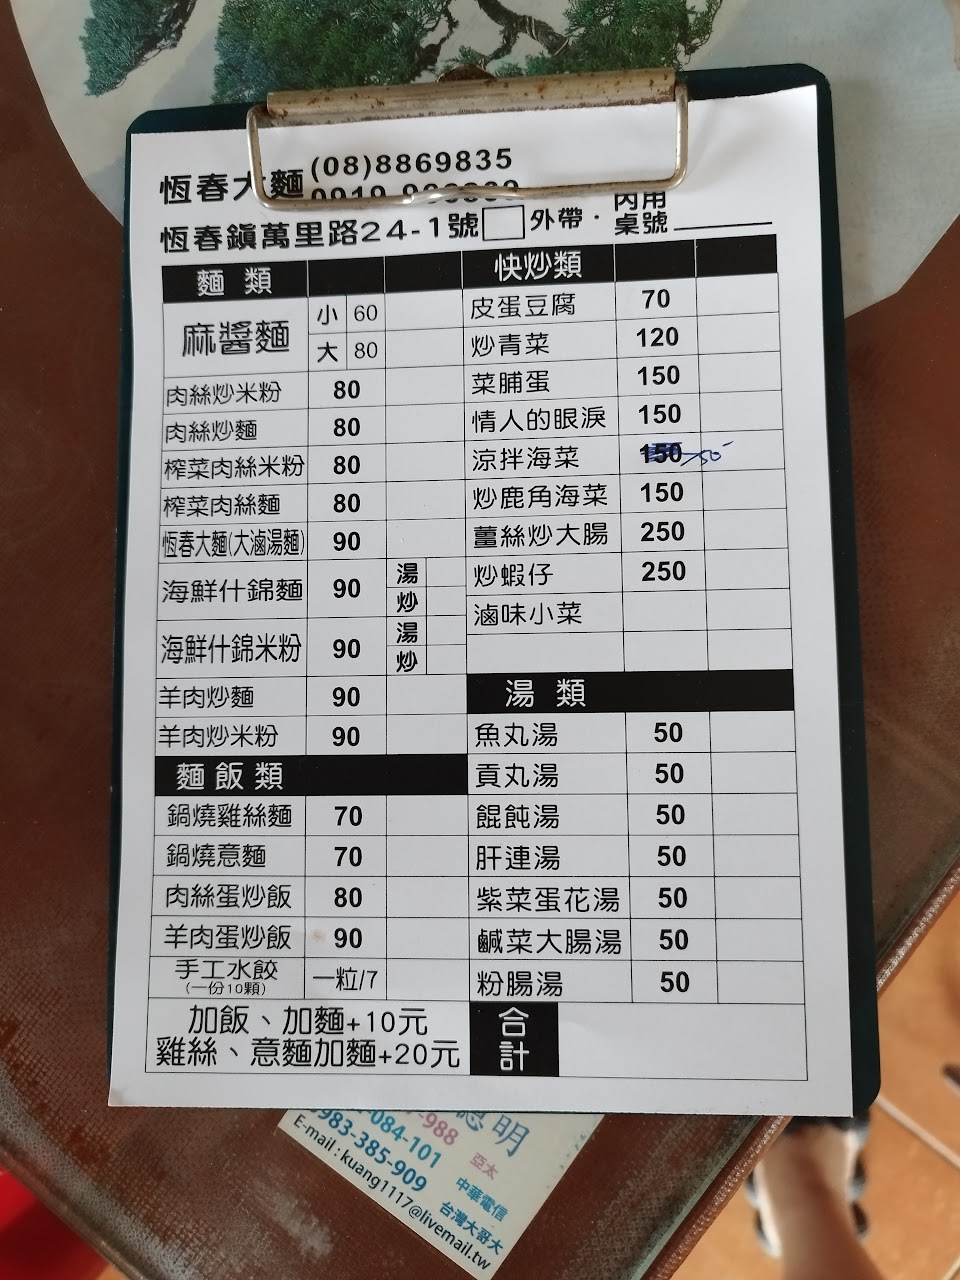 恆春大麵 (08)8869835
恆春鎮萬里路24-1號 外帶 · 內用
桌號
麵 類
麻醬麵 小 60
大 80
肉絲炒米粉 80
肉絲炒麵 80
榨菜肉絲米粉 80
榨菜肉絲麵 80
恆春大麵(大滷湯麵) 90
海鮮什錦麵 90 湯
炒
海鮮什錦米粉 90 湯
炒
羊肉炒麵 90
羊肉炒米粉 90
麵飯類
鍋燒雞絲麵 70
鍋燒意麵 70
肉絲蛋炒飯 80
羊肉蛋炒飯 90
手工水餃 一粒/7
(一份10顆)
加飯、加麵+10元
雞絲、意麵加麵+20元
快炒類
皮蛋豆腐 70
炒青菜 120
菜脯蛋 150
情人的眼淚 150
涼拌海菜 150
炒鹿角海菜 150
薑絲炒大腸 250
炒蝦仔 250
滷味小菜
湯 類
魚丸湯 50
貢丸湯 50
餛飩湯 50
肝連湯 50
紫菜蛋花湯 50
鹹菜大腸湯 50
粉腸湯 50
合計
明
988
084-101
983-385-909
E-mail:kuang1117@livemail.tw
亞太
中華電信
台灣大哥大